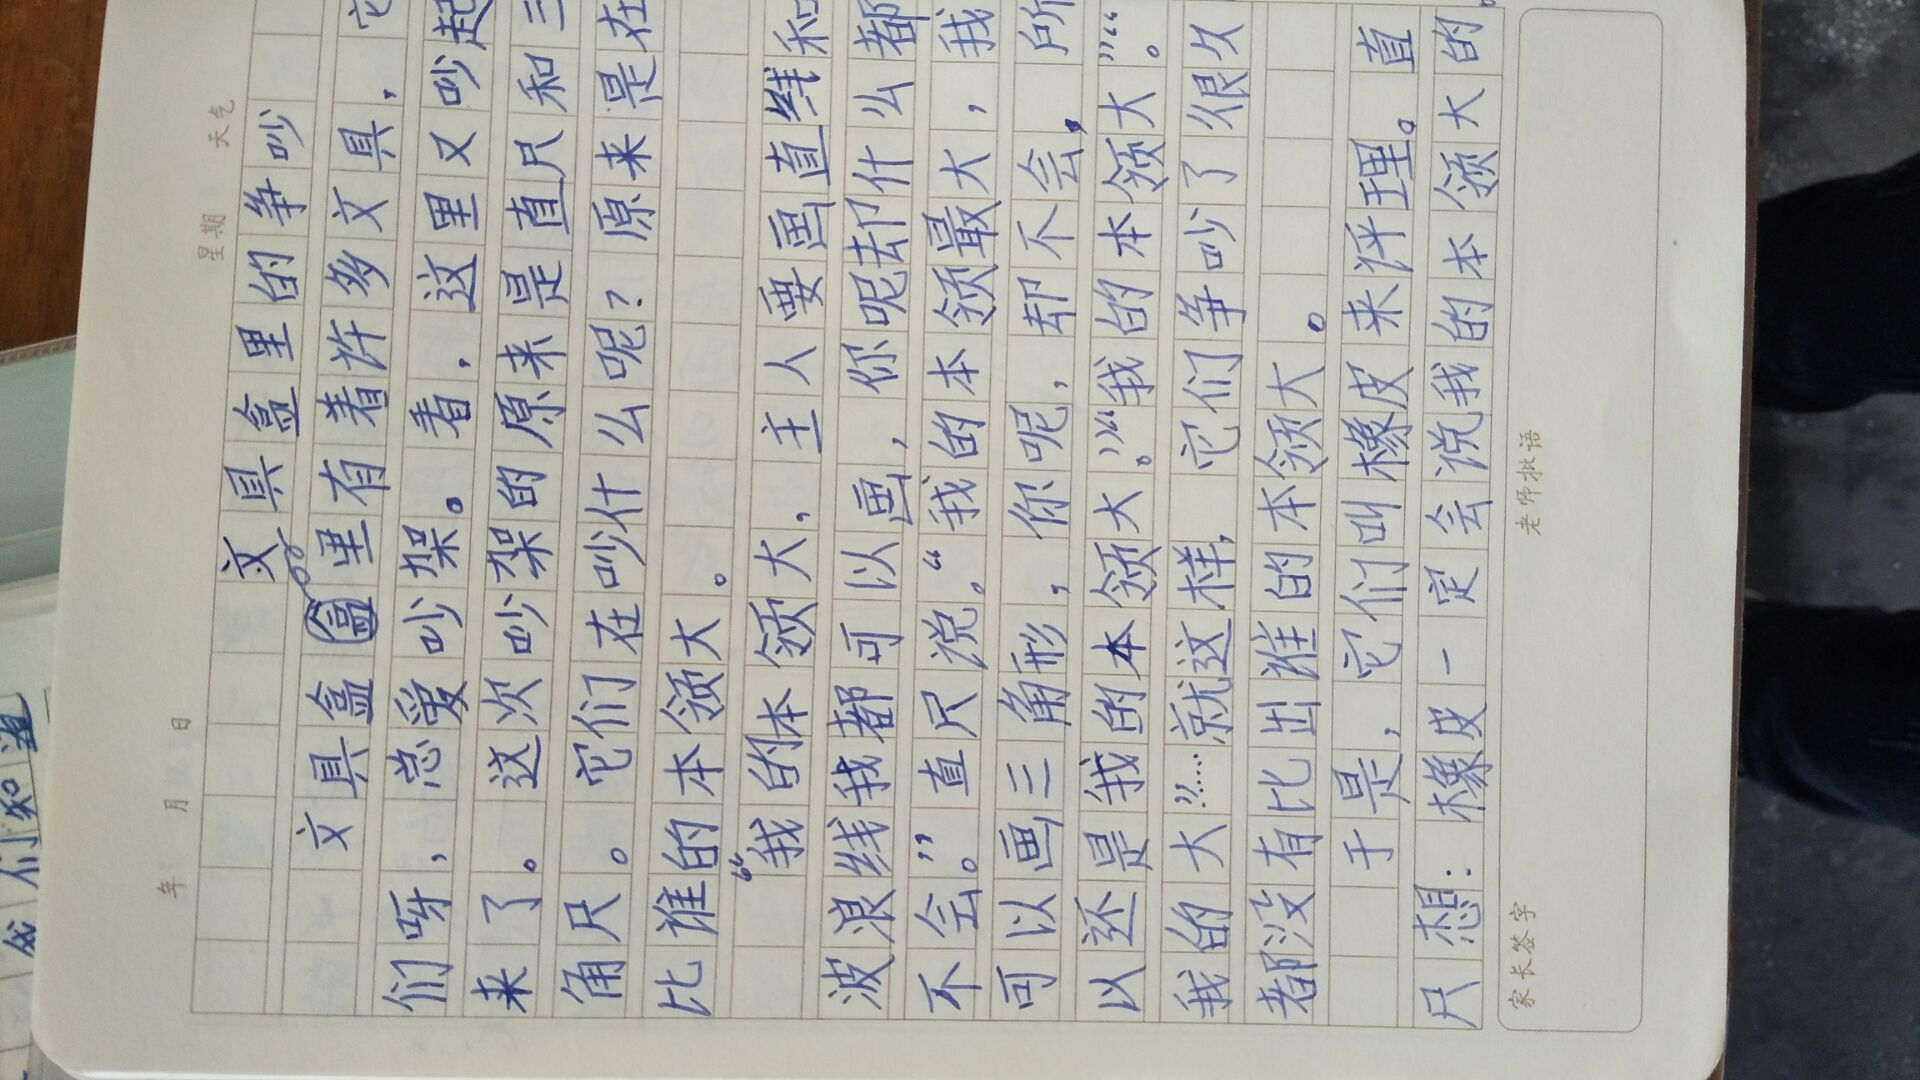 年 月 日 星期 天气
文具盒里的争吵
文具盒里有着许多文具,它
们呀,总爱吵架。看,这里又吵起
来了。这次吵架的原来是直尺和三
角尺。它们在吵什么呢?原来是在
比谁的本领大。
“我的本领大,主人要画直线和
波浪线我都可以画,你呢却什么都
不会。”直尺说。“我的本领最大,我
可以画三角形,你呢,却不会,所
以还是我的本领大。”“我的本领大。”“
我的大”……就这样,它们争吵了很久
都没有比出谁的本领大。
于是,它们叫橡皮来评理。直
尺想:橡皮一定会说我的本领大的。
家长签字
老师批语